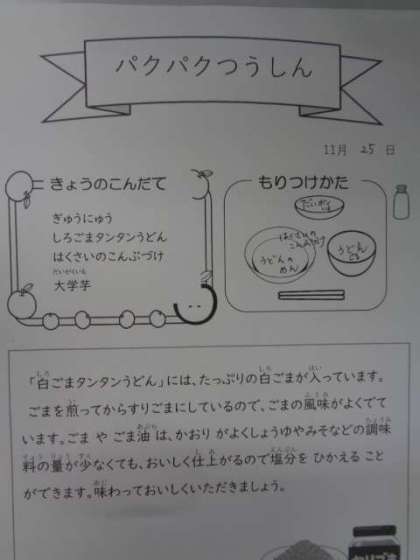 パクパクつうしん
11月 25 日
きょうのこんだて
ぎゅうにゅう
しろごまタンタンうどん
はくさいのこんぶづけ
大学芋
もりつけかた
うどんのめん
うどん
「白ごまタンタンうどん」には、たっぷりの白ごまが入っています。
ごまを煎ってからすりごまにしているので、ごまの風味がよくでて
います。ごま や ごま油 は、かおり がよくしょうゆやみそなどの調味
料の量が少なくても、おいしく仕上がるので塩分を ひかえる こと
ができます。味わっておいしくいただきましょう。